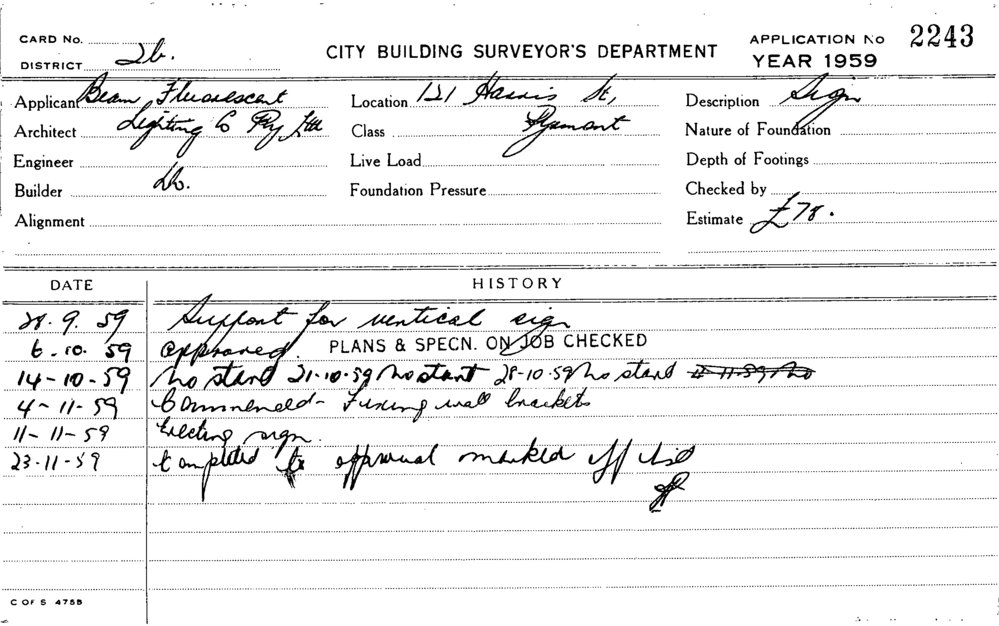 CARD No.
CITY BUILDING SURVEYOR'S DEPARTMENT
APPLICATION No 2243
DISTRICT 2b.
YEAR 1959
Applicant Beam Fluorescent Location 121 Harris St, Description Sign
Architect Lighting Co Pty Ltd Class Pyrmont Nature of Foundation
Engineer Live Load Depth of Footings
Builder do. Foundation Pressure Checked by
Alignment Estimate £78.
DATE HISTORY
28.9.59 Support for vertical sign
6.10.59 approved. PLANS & SPECN. ON JOB CHECKED
14-10-59 No start 21-10-59 No start 28-10-59 No start 4-11-59 No
4-11-59 Commenced - Fixing wall brackets
11-11-59 Erecting sign.
23-11-59 Completed to approval marked off list
C OF S 475B